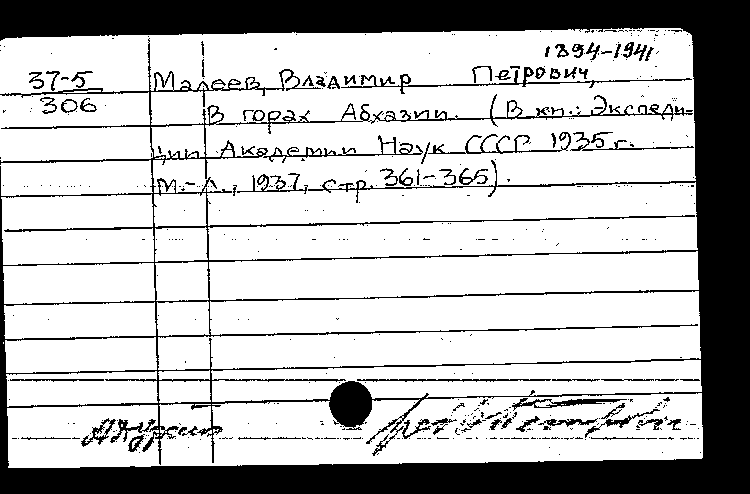 1894-1941
37-5 Малеев, Владимир Петрович,
306 В горах Абхазии. (В кн.: Экспеди-
ции Академии Наук СССР 1935 г.
М.-Л., 1937, стр. 361-365).